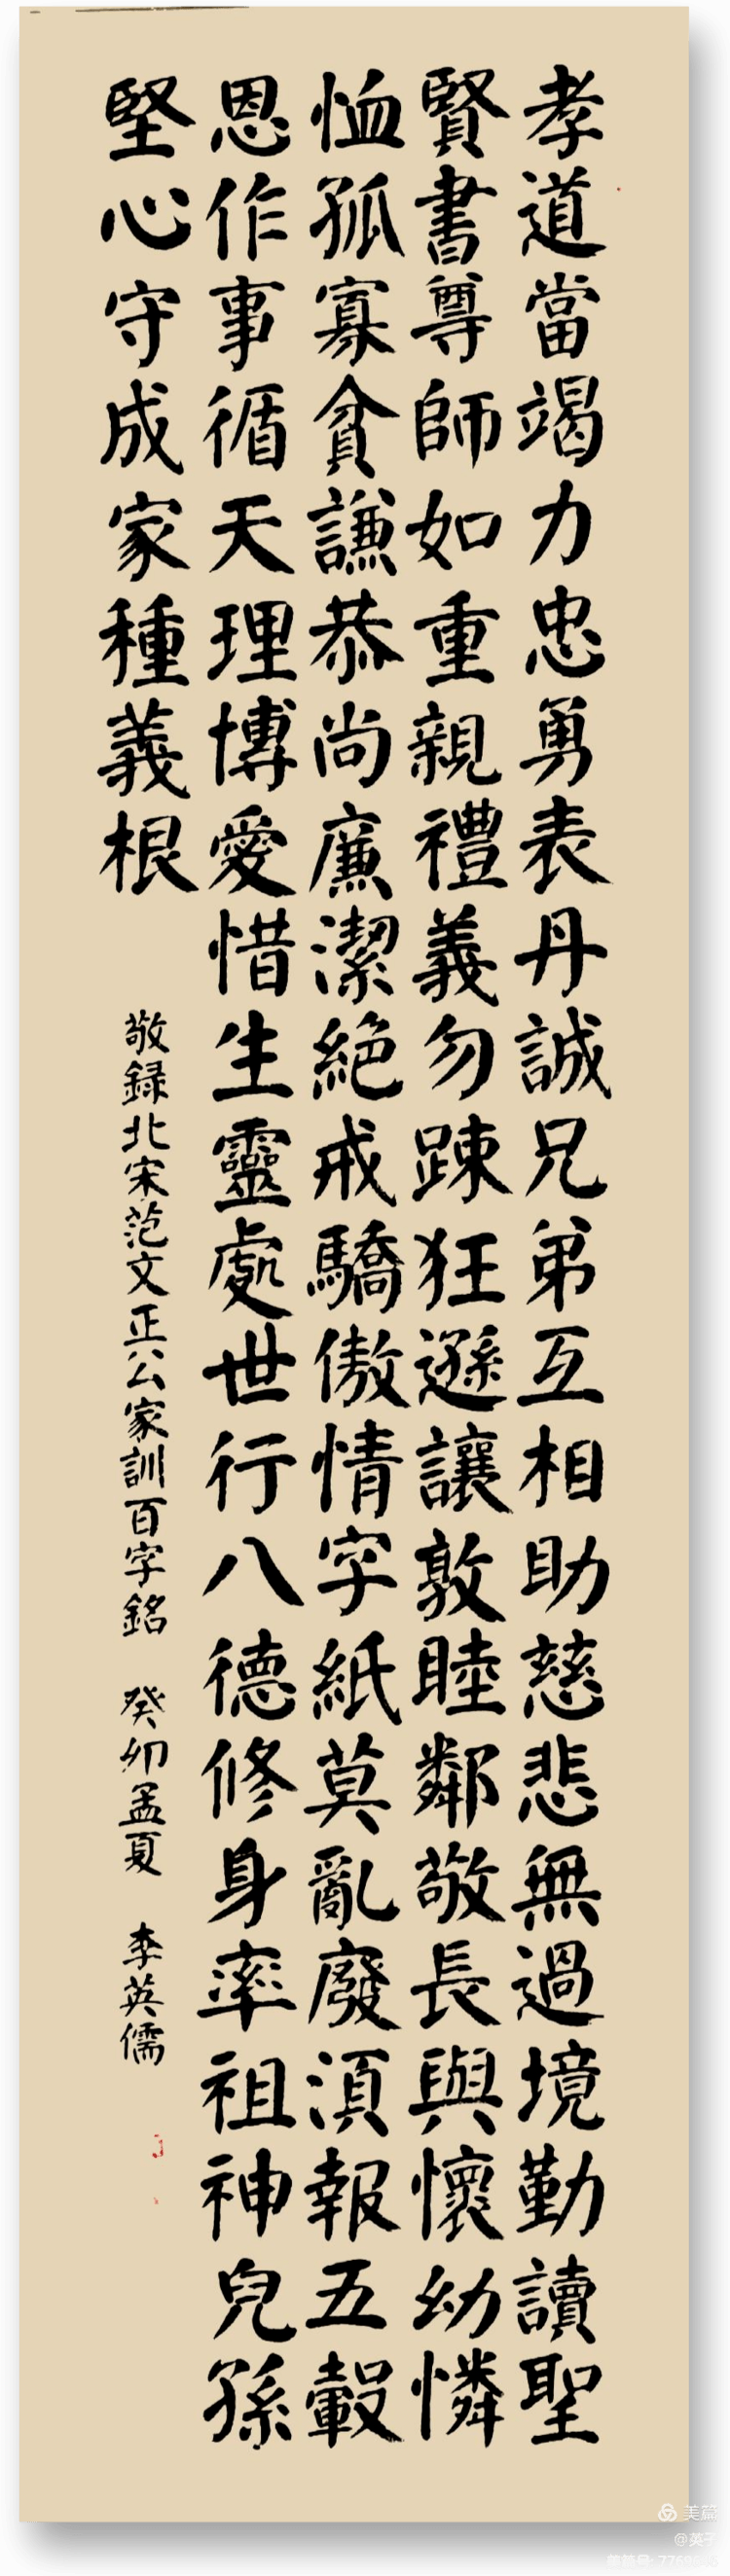 孝道當竭力忠勇表丹誠兄弟互相助慈悲無過境勤讀聖
賢書尊師如重親禮義勿踈狂遜讓敦睦鄰敬長與懷幼憐
恤孤寡貧謙恭尚廉潔絕戒驕傲情字紙莫亂廢須報五穀
恩作事循天理博愛惜生靈處世行八德修身率祖神兒孫
堅心守成家種義根
敬録北宋范文正公家訓百字銘 癸卯孟夏 李英儒
美篇
@英子